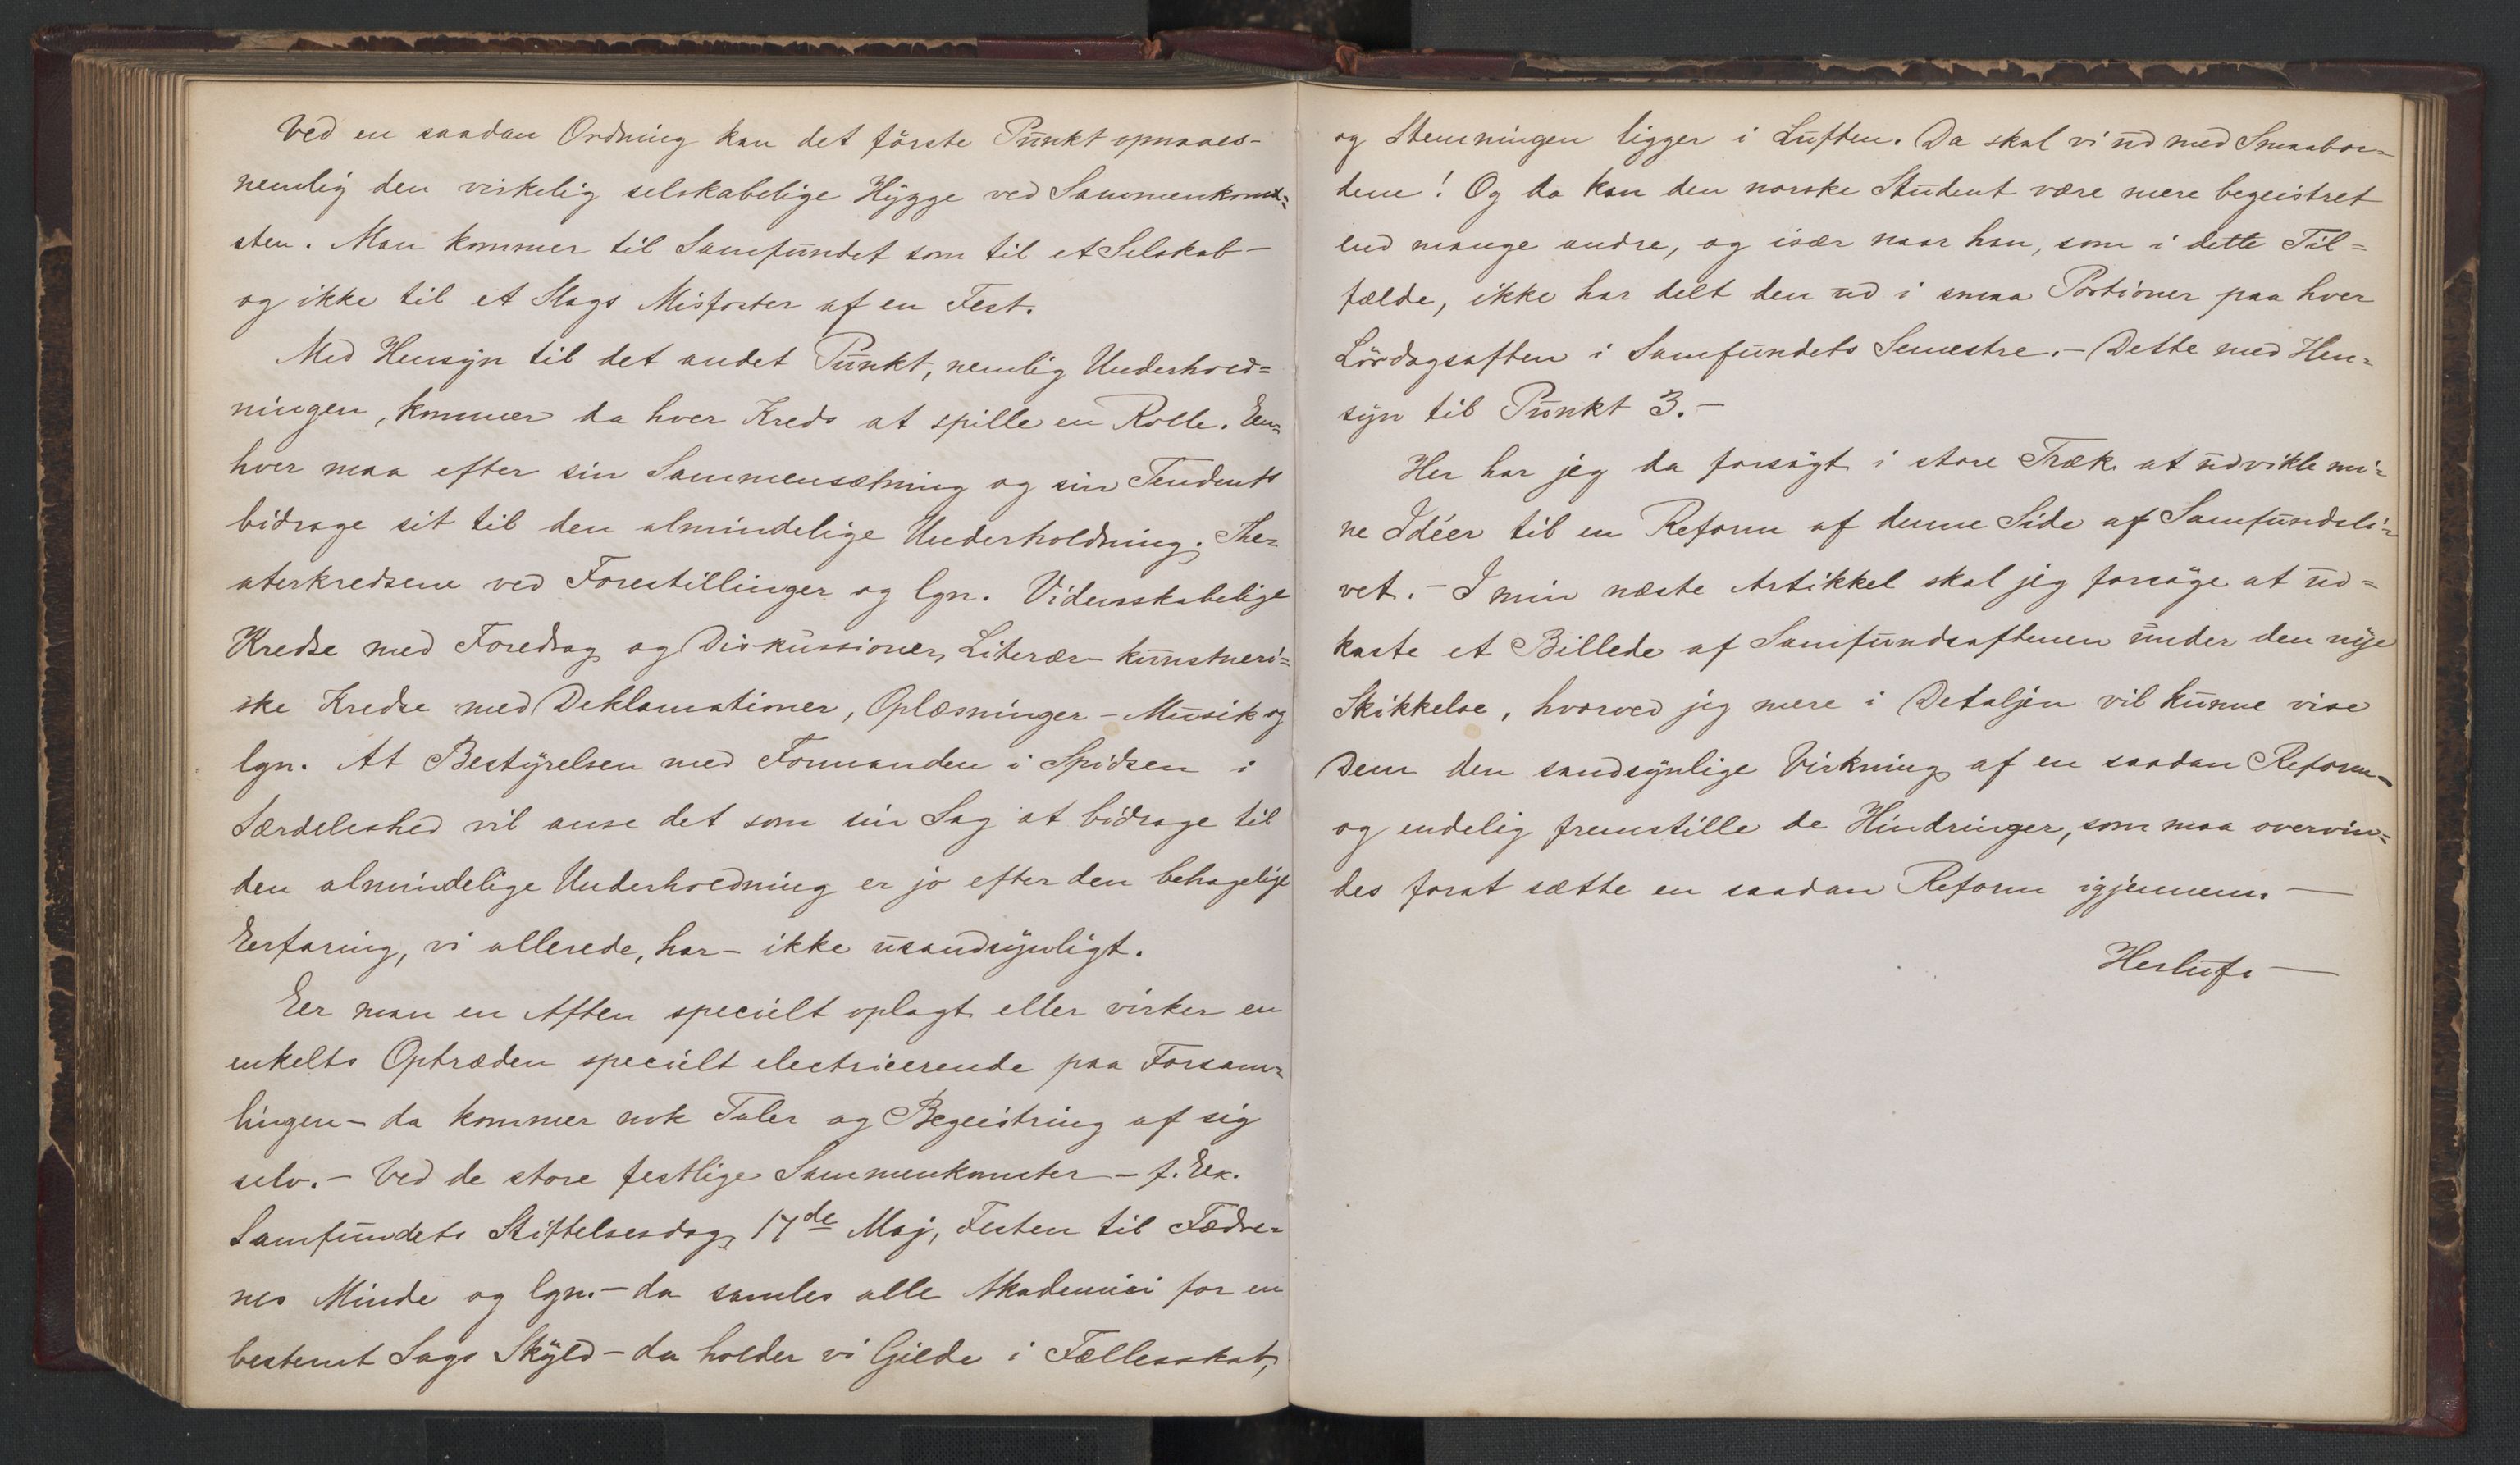 Ved en saadan Ordning kan det første Punkt opnaaes-
nemlig den virkelig selskabelige Hygge ved Sammenkom=
sten. Man kommer til Samfundet som til et Selskab -
og ikke til et Slags Misfoster af en Fest.
Med Hensyn til det andet Punkt, nemlig Underhold=
ningen, kommer da hver Kreds at spille en Rolle. En=
hver maa efter sin Sammensætning og sin Tendents
bidrage sit til den almindelige Underholdning. The=
aterkredsene ved Forestillinger og lgn. Videnskabelige
Kredse med Foredrag og Diskussioner, Literær-kunstneri=
ske Kredse med Deklamationer, Oplæsninger - Musik og
lgn. At Bestyrelsen med Formanden i Spidsen i
Særdeleshed vil anse det som sin Sag at bidrage til
den almindelige Underholdning er jo efter den behagelige
Erfaring, vi allerede, har - ikke usandsynligt.
Er man en Aften specielt oplagt eller virker en
enkelts Optræden specielt electricerende paa Forsam=
lingen - da kommer nok Taler og Begeistring af sig
selv. - Ved de store festlige Sammenkomster - f. Ex.
Samfundets Stiftelsesdag, 17de Maj, Festen til Fædre=
nes Minde og lgn. - da samles alle Akademici for en
bestemt Sags Skyld - da holder vi Gilde i Fællesskab,
og Stemningen ligger i Luften. Da skal vi ud med Smaabor=
dene! Og da kan den norske Student være mere begeistret
end mange andre, og især naar han, som i dette Til=
fælde, ikke har delt den ud i smaa Portioner paa hver
Lördagsaften i Samfundets Semestre. - Dette med Hen=
syn til Punkt 3. -
Her har jeg da forsøgt i store Træk at udvikle mi=
ne Idéer til en Reform af denne Side af Samfundsli=
vet. - I min næste Artikkel skal jeg forsøge at ud=
kaste et Billede af Samfundsaftenen under den nye
Skikkelse, hvorved jeg mere i Detaljen vil kunne vise
Dem den sandsynlige Virkning af en saadan Reform -
og endelig fremstille de Hindringer, som maa overvin=
des forat sætte en saadan Reform igjennem. -
Herluf. -